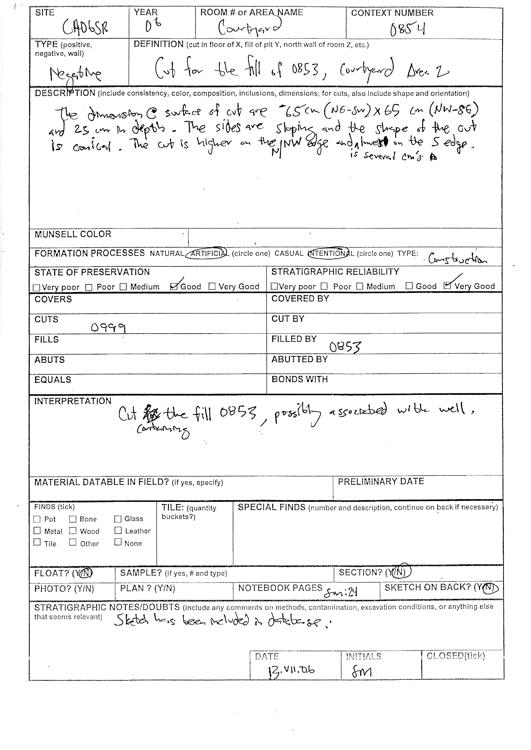 SITE YEAR ROOM # or AREA NAME CONTEXT NUMBER
CA06SR 06 Courtyard 0854
TYPE (positive, negative, wall) DEFINITION (cut in floor of X, fill of pit Y, north wall of room Z, etc.)
Negative Cut for the fill of 0853, Courtyard Area 2
DESCRIPTION (include consistency, color, composition, inclusions, dimensions; for cuts, also include shape and orientation)
The dimension @ surface of cut are ~65cm (NE-SW) X 65 cm (NW-SE)
and 25 cm in depth. The sides are sloping and the shape of the cut
is conical. The cut is higher on the N/NW edge and on the S edge.
is several cm's
MUNSELL COLOR
FORMATION PROCESSES NATURAL ARTIFICIAL (circle one) CASUAL INTENTIONAL (circle one) TYPE: Construction
STATE OF PRESERVATION STRATIGRAPHIC RELIABILITY
Very poor Poor Medium Good Very Good Very poor Poor Medium Good Very Good
COVERS COVERED BY
CUTS 0999 CUT BY
FILLS FILLED BY 0853
ABUTS ABUTTED BY
EQUALS BONDS WITH
INTERPRETATION
Cut the fill 0853, possibly associated with well.
containing
MATERIAL DATABLE IN FIELD? (if yes, specify) PRELIMINARY DATE
FINDS (tick) TILE: (quantity buckets?) SPECIAL FINDS (number and description, continue on back if necessary)
Pot Bone Glass
Metal Wood Leather
Tile Other None
FLOAT? (Y/N) SAMPLE? (if yes, # and type) SECTION? (Y/N)
PHOTO? (Y/N) PLAN ? (Y/N) NOTEBOOK PAGES SM:24 SKETCH ON BACK? (Y/N)
STRATIGRAPHIC NOTES/DOUBTS (include any comments on methods, contamination, excavation conditions, or anything else
that seems relevant) Sketch has been included in database.
DATE INITIALS CLOSED(tick)
13.VII.06 SM